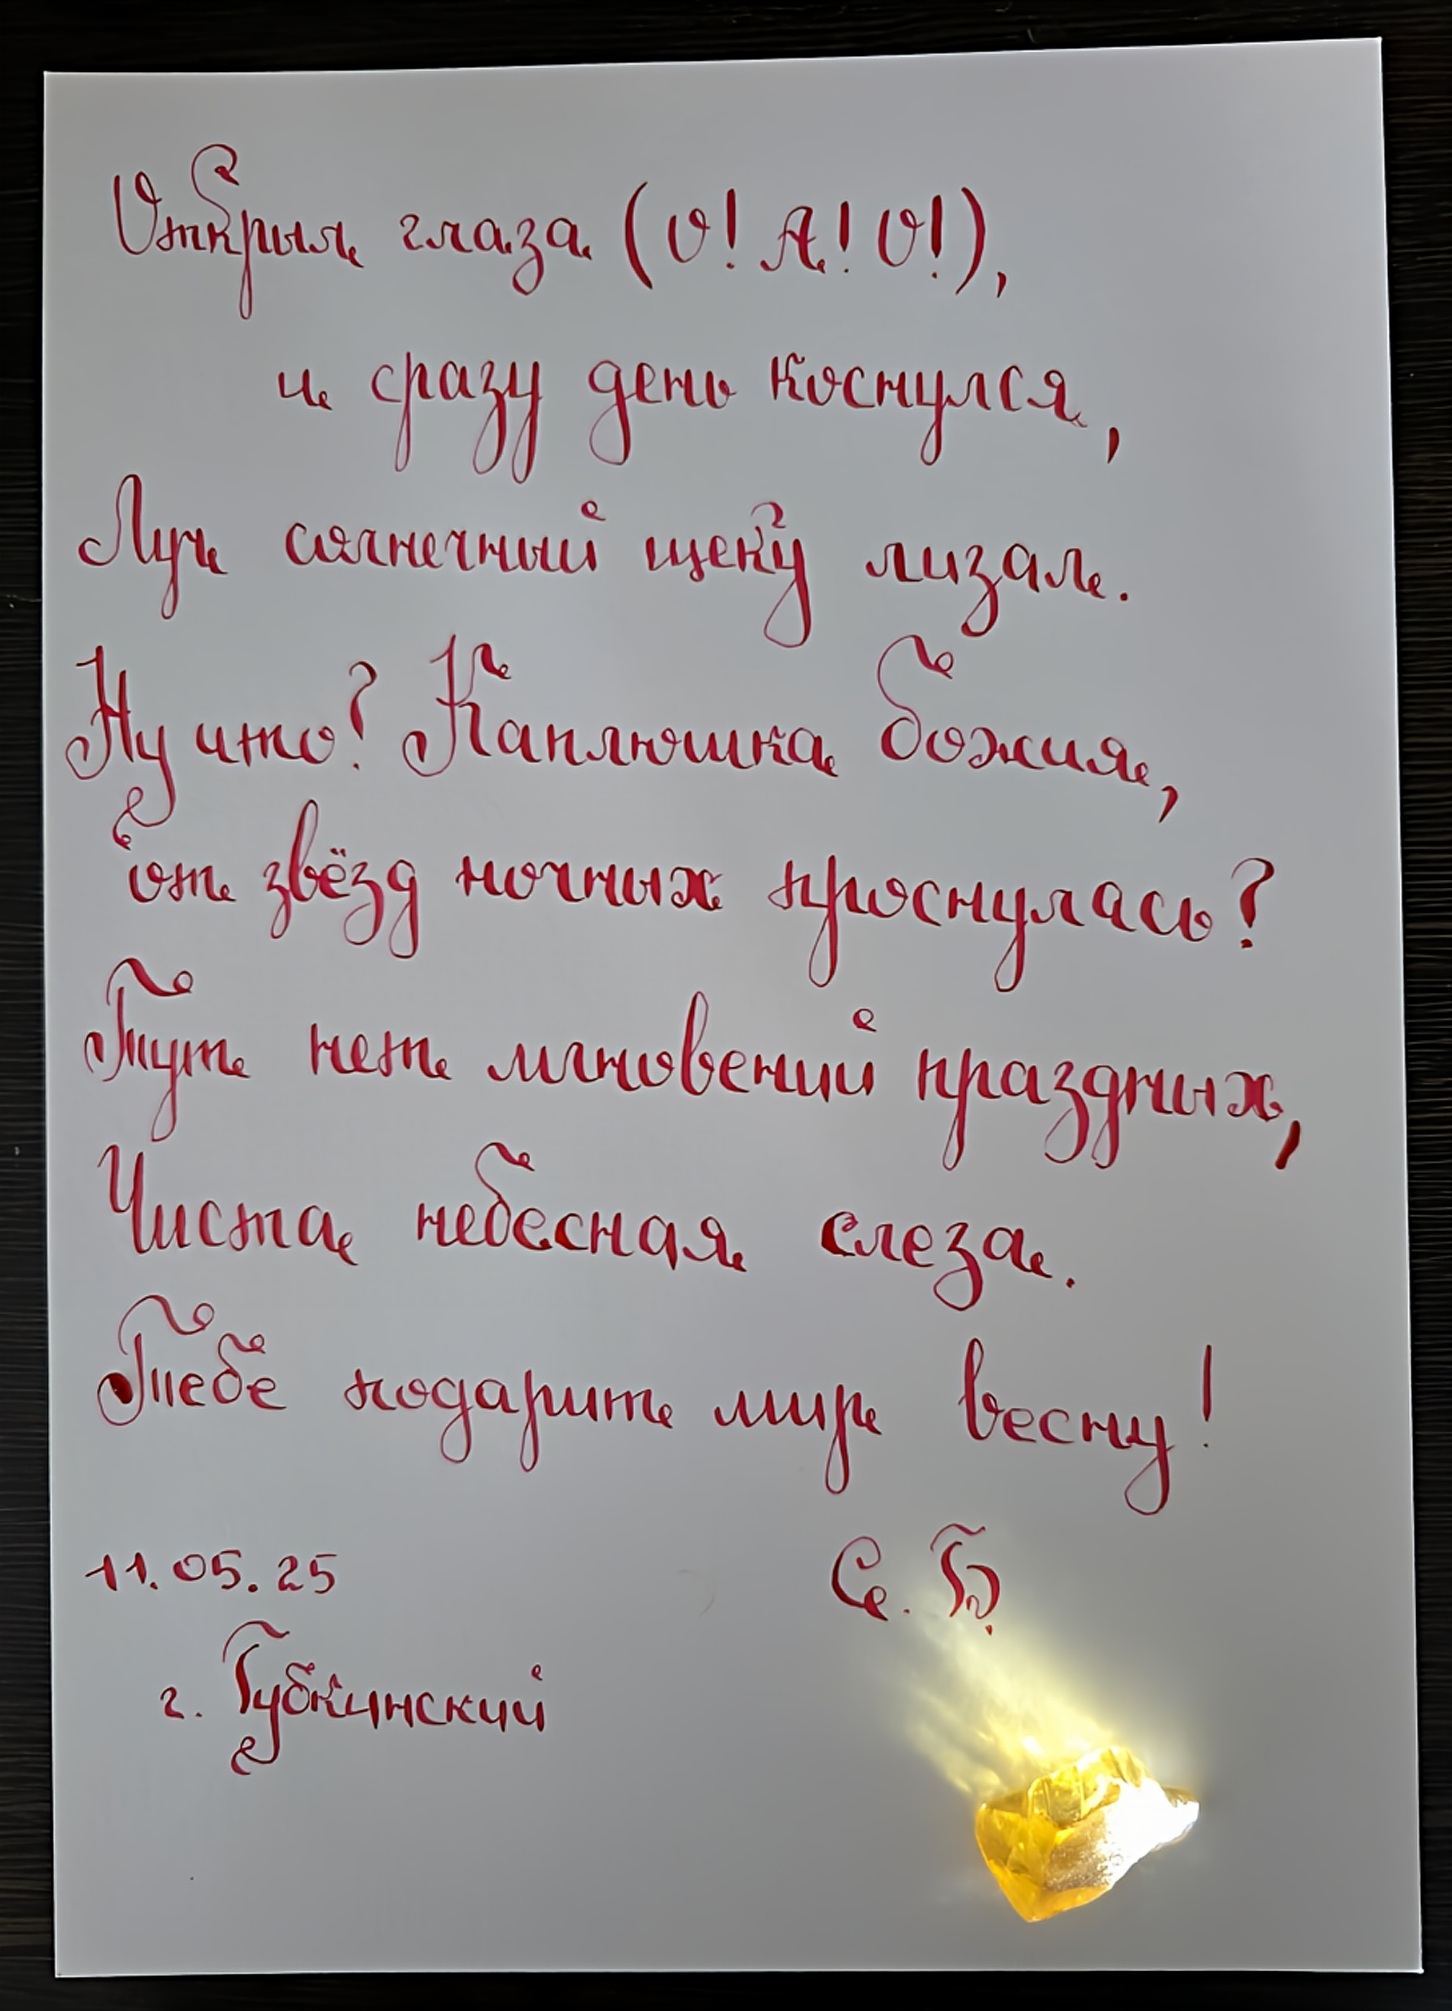 Открыл глаза (О! А! О!),
и сразу день коснулся,
Луч солнечный щеку лизал.
Ну что? Каплюшка божия,
от звёзд ночных проснулась?
Тут нет мгновений праздных,
Чиста небесная слеза.
Тебе подарит мир весну!
11.05.25 С. Б.
г. Губкинский